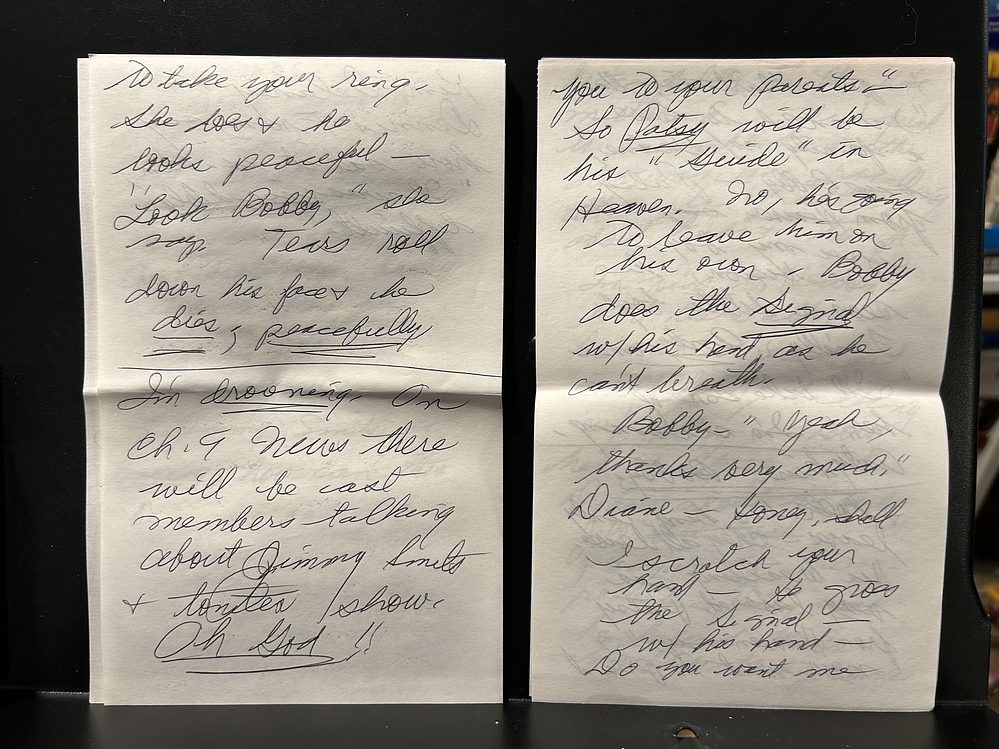 to take your ring.
She does & he
looks peaceful —
"Look Bobby," she
say. Tears roll
down his face & he
dies; peacefully
I'm drooning. On
ch. 9 News there
will be cast
members talking
about Jimmy Smits
& tonites show.
Oh God!!
you to your parents"—
So Patsy will be
his "Guide" in
Heaven. No, he's going
to leave him on
his own. Bobby
does the Signal
w/ his hand, as he
can't breath.
Bobby – "Yeah,
thanks very much."
Diane – Honey, shall
I scratch your
hand – He gives
the Signal —
w/ his hand —
Do you want me